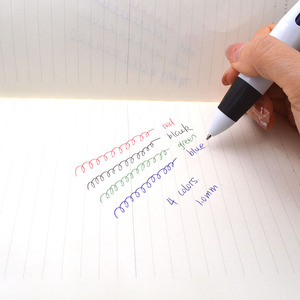 red
black
green
blue
4 colors
1.0mm